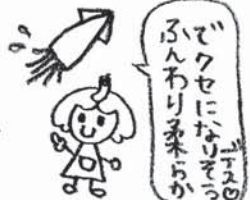 ふんわり柔らか
でクセになりそう
デス♡